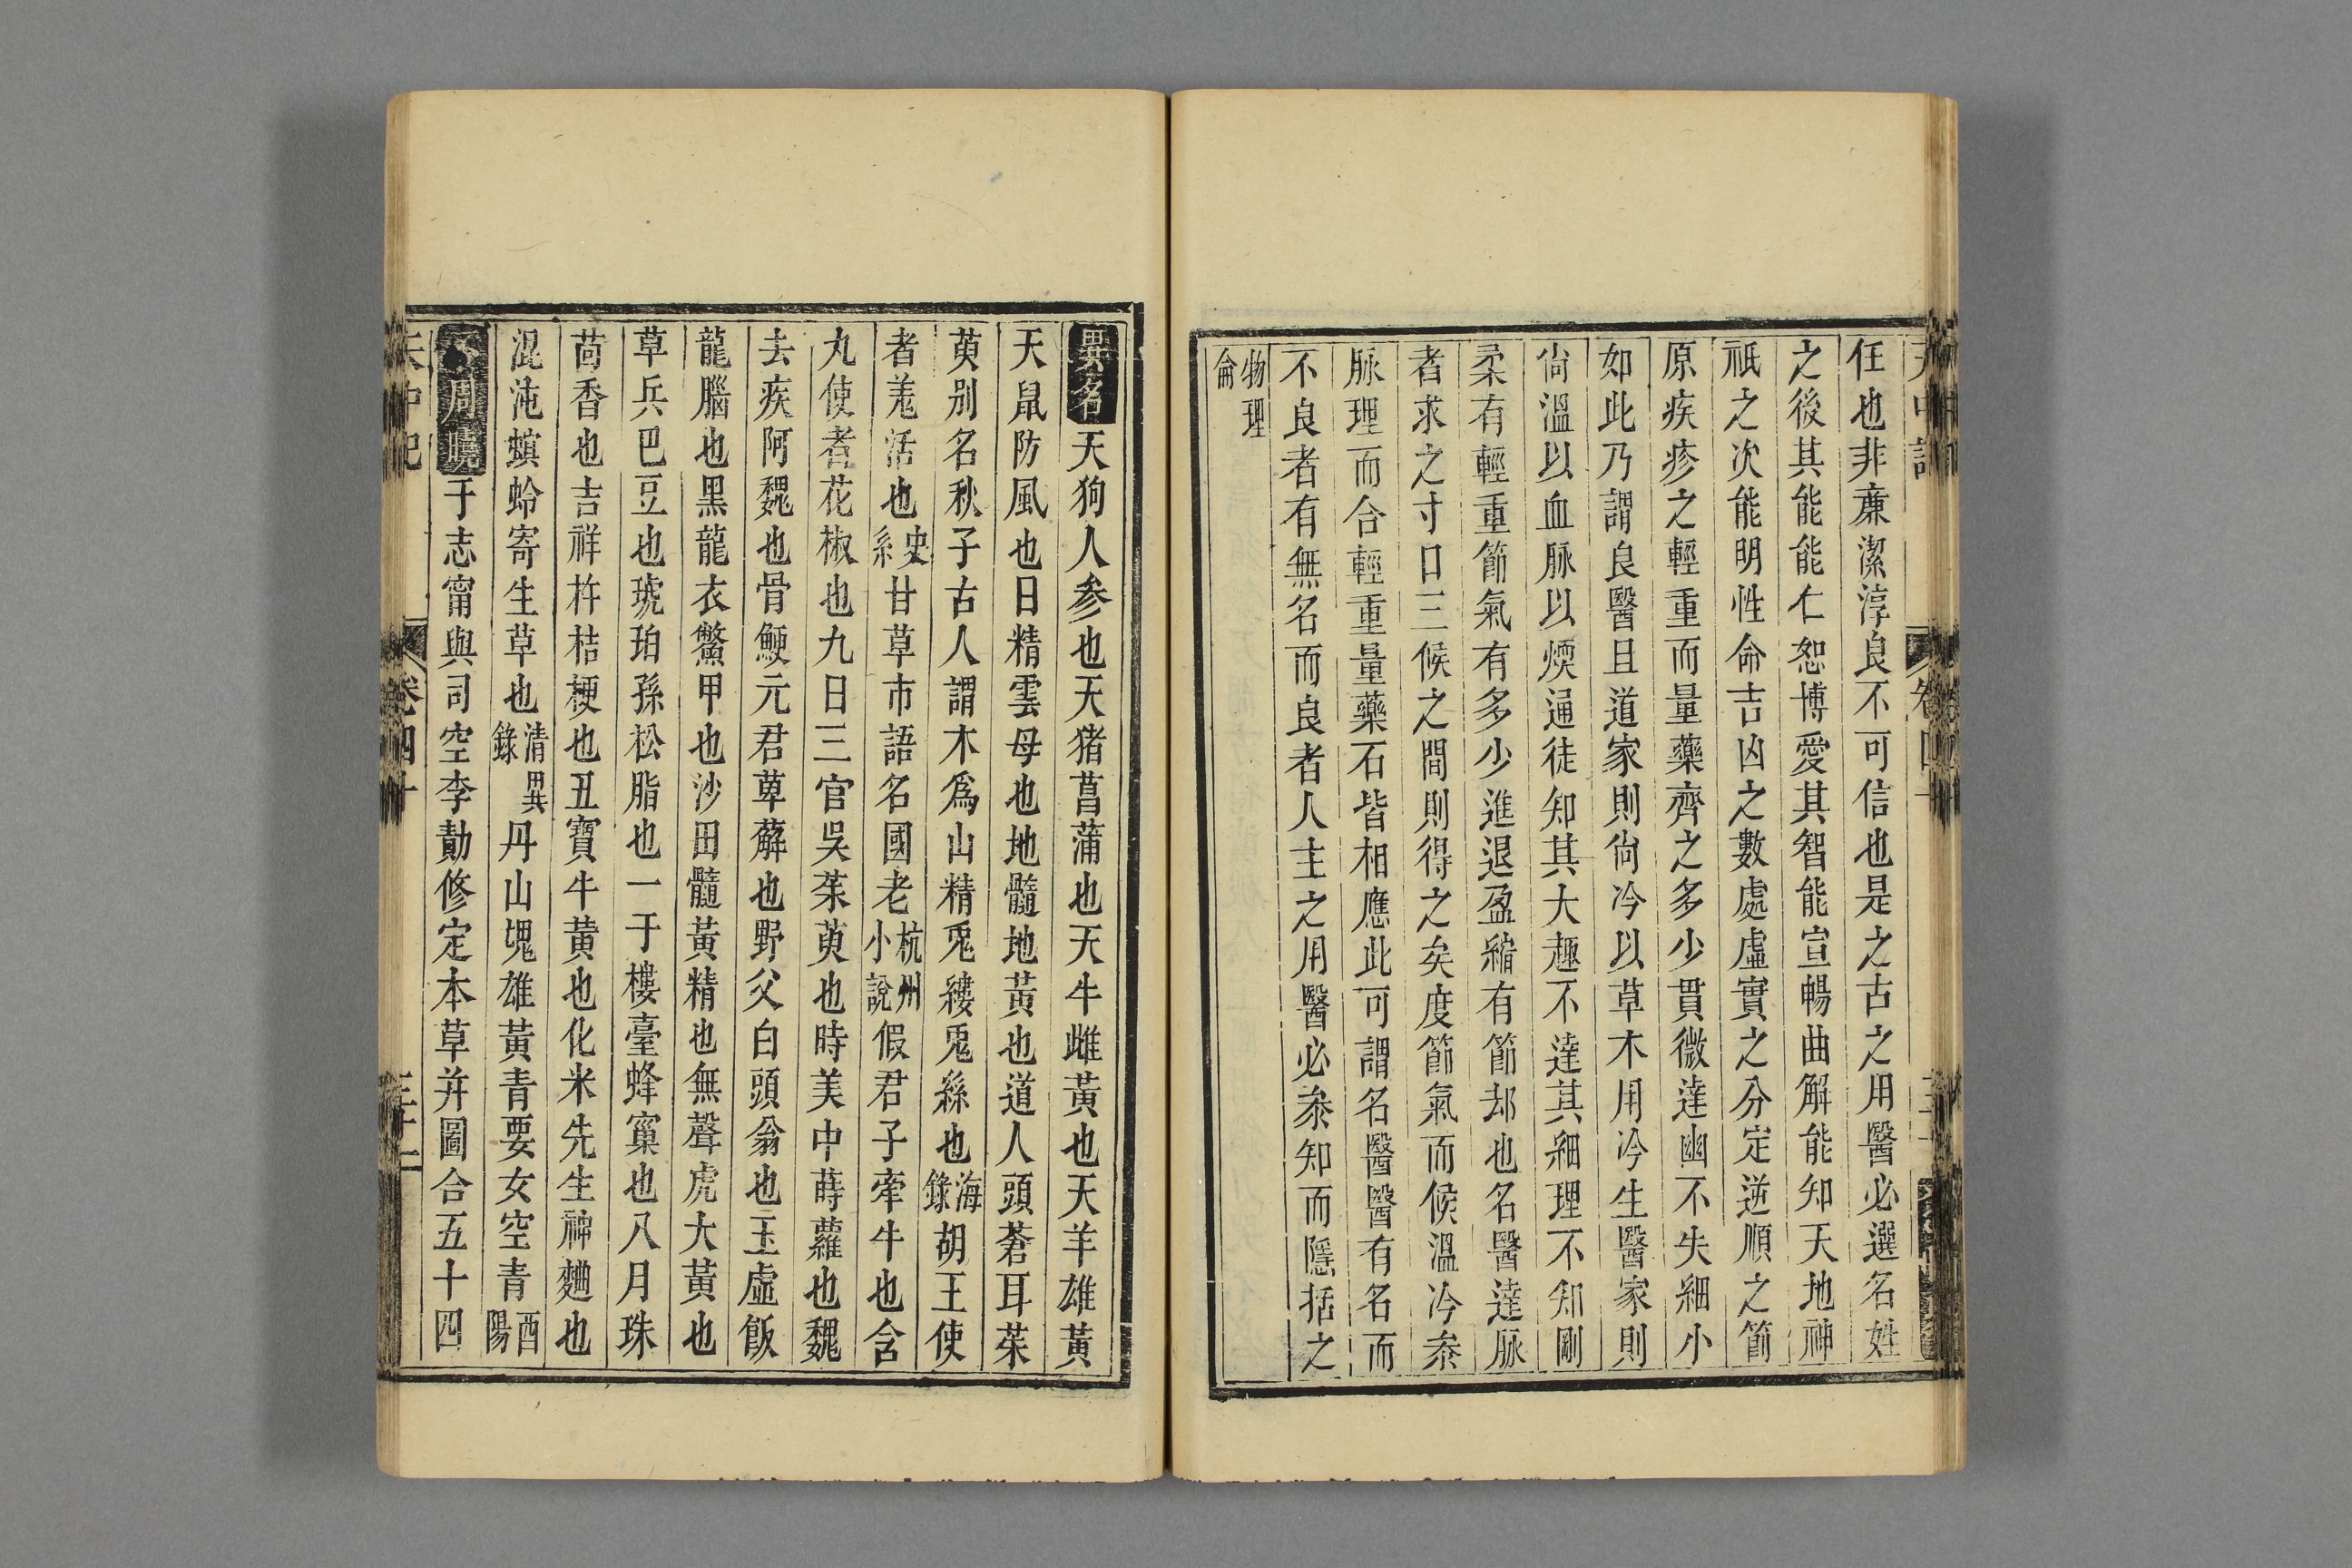 任也非亷潔淳良不可信也是之古之用醫必選名姓
之後其能能仁恕博愛其智能宣暢曲解能知天地神
祇之次能明性命吉凶之數處虛實之分定逆順之節
原疾疹之輕重而量藥齊之多少貫微達幽不失細小
如此乃謂良醫且道家則尙冷以草木用冷生醫家則
尙溫以血脉以煗通徒知其大趣不達其細理不知剛
柔有輕重節氣有多少進退盈縮有節却也名醫達脉
者求之寸口三候之間則得之矣度節氣而候溫冷叅
脉理而合輕重量藥石皆相應此可謂名醫醫有名而
不良者有無名而良者人主之用醫必叅知而隱括之
物理
侖
異名天狗人參也天猪菖蒲也天牛雌黃也天羊雄黃
天鼠防風也日精雲母也地髓地黃也道人頭蒼耳茱
萸别名秋子古人謂木爲山精兎縷兎絲也海錄胡王使
者羌活也史系甘草市語名國老杭州小說假君子牽牛也含
丸使者花椒也九日三官吳茱萸也時美中蒔蘿也魏
去疾阿魏也骨鯁元君萆薢也野父白頭翁也玉虛飯
龍腦也黑龍衣鱉甲也沙田髓黃精也無聲虎大黃也
草兵巴豆也琥珀孫松脂也一于樓臺蜂窠也八月珠
茴香也吉祥杵桔梗也丑寶牛黃也化米先生神麯也
混沌螟蛉寄生草也清異錄丹山塊雄黃青要女空青酉陽
不周曉于志甯與司空李勣修定本草并圖合五十四
天中記
卷四十